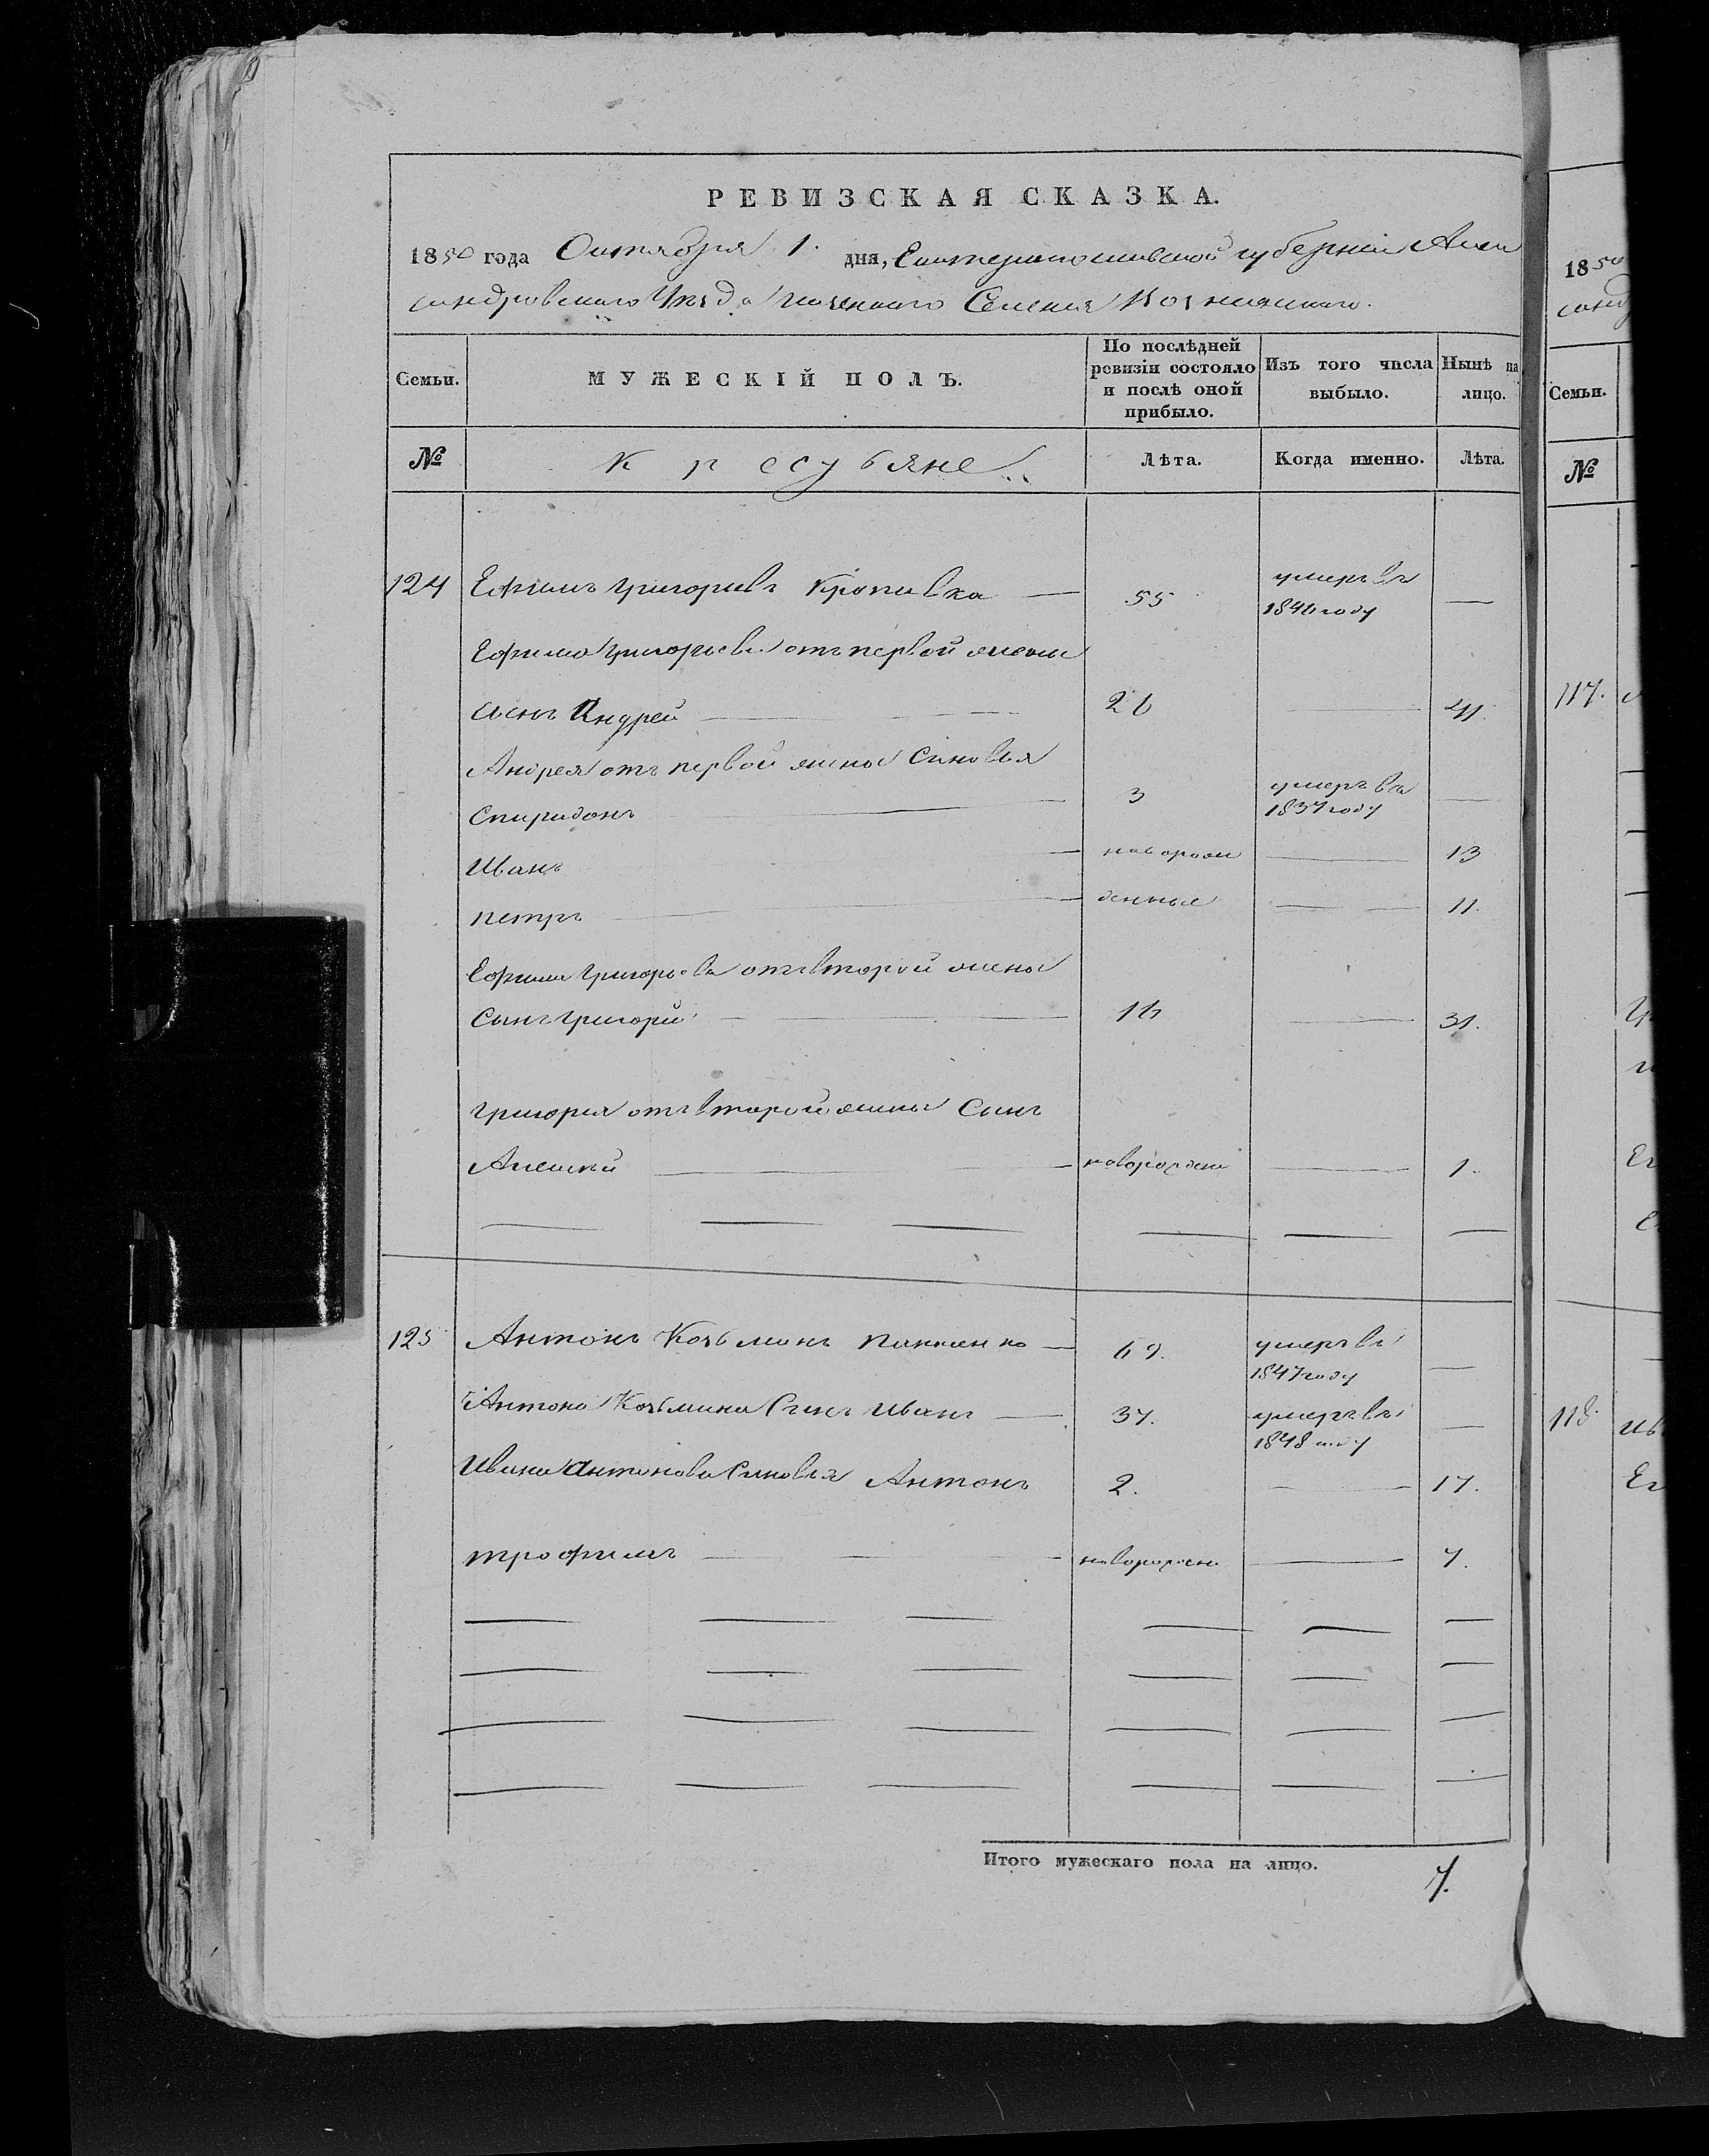 РЕВИЗСКАЯ СКАЗКА.
1850 года Октября 1. дня, Екатеринославской губернии Алек
сандровского Уезда казенного Селения
Семьи.
МУЖЕСКІЙ ПОЛЪ.
По послѣдней ревизіи состояло и послѣ оной прибыло.
Изъ того числа выбыло.
Нынѣ на лицо.
№
Лѣта.
Когда именно.
Лѣта.
124 Ефимъ Григорьевъ Кропивка — 55 умеръ въ 1846 году —
Ефима Григорьева отъ первой жены
сынъ Андрей — 26 — 41.
Андрея отъ первой жены Сыновья
Спиридонъ — 3 умеръ въ 1837 году —
Иванъ — новорож — 13
Петръ — денные — 11.
Ефима Григорьева отъ второй жены
Сынъ Григорий — 16 — 31.
Григория отъ второй жены Сынъ
Алексей — новорожден — 1.
125 Антонъ Козьминъ — 69. умеръ въ 1847 году —
Антона Козьмина Сынъ Иванъ — 37. умеръ въ 1848 году —
Ивана Антонова Сыновья Антонъ 2. — 17.
Трофимъ — новорожден — 7.
Итого мужескаго пола на лицо. 7.
1850
санд
Семьи.
№
117.
118.
Ив